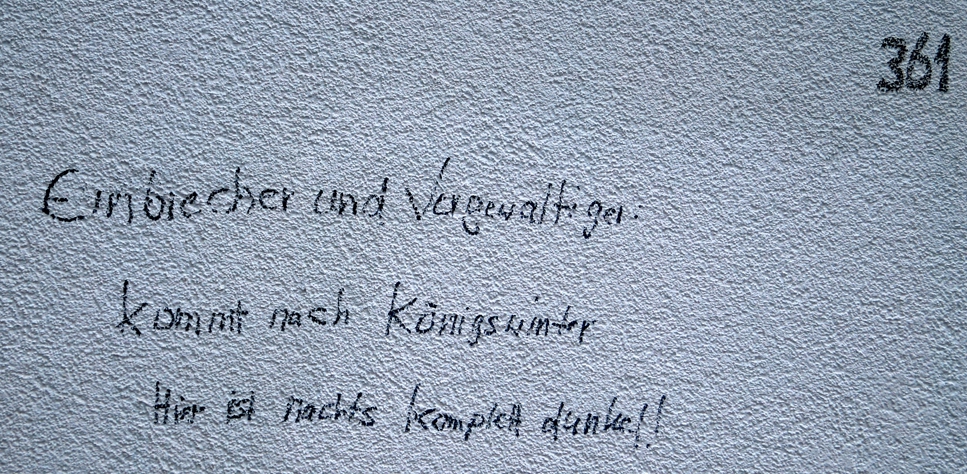 361
Einbrecher und Vergewaltiger:
kommt nach Königswinter
Hier ist nachts komplett dunkel!